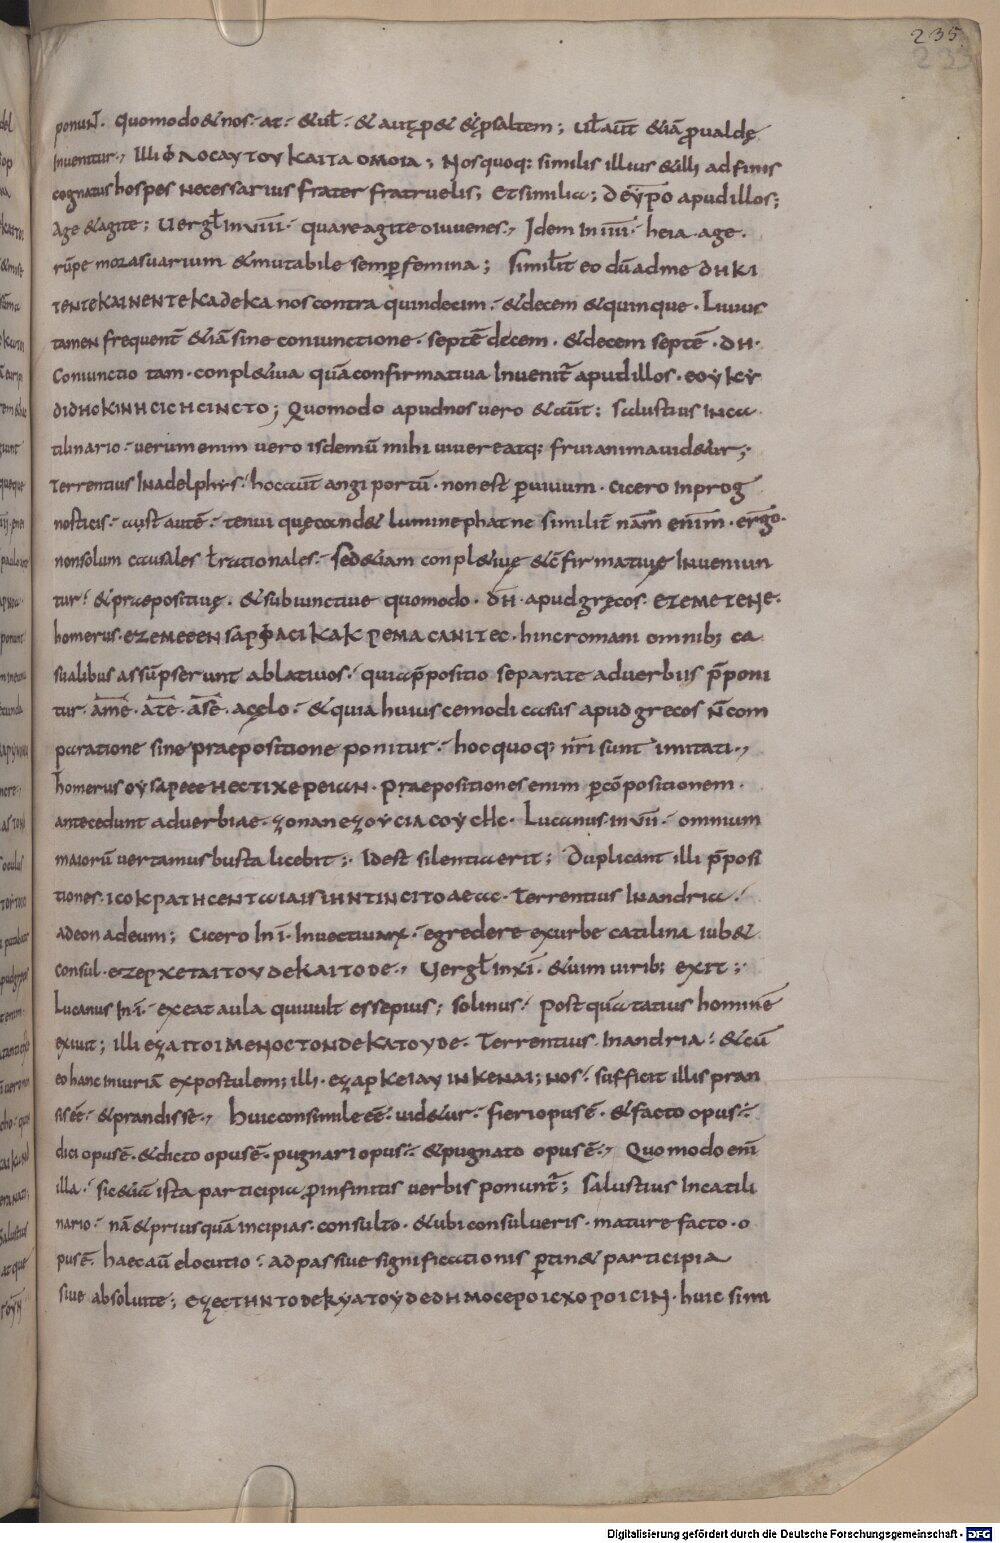 235
233
ponunt̄. quomodo & nos. at. & ul̄. & aut p& & psaltem; ul̄ aūt &iā pualdę
Inuenitur., Illi ΦΛΟCΑΥΤΟΥ ΚΑΙΤΑ ΟΜΟΙΑ; Nos quoq: similis illius &illi adfinis
cognatus hospes necessarius frater fratruelis; Et similia; δεyρο apud illos;
Age &agite; Uergł In viiii. quare agite o iuuenes., Idem In iiii. heia. age.
rūpe moras uarium &mutabile semp femina; Simil̄it eo dū adme δΗΚΙ
ΤΕΝΤΕΚΑΙΝΕΝΤΕΚΑδΕΚΑ nos contra quindecim. &decem &quinque. Liuius
tamen frequent̄ &iā sine coniunctione. septē decem. &decem septē. δΗ.
Coniunctio tam. conpl&iua quā confirmatiua Inuenit̄ apud illos. ΕΟΥΚΥ
ΔΙΔΗCΚΙΝΗCΙCΗCΙΝCΤΟ; Quomodo apud nos uero &aūt: Salustius Inca
tilinario. uerum enim uero is demū mihi uiuere atq: frui anima uid&ur;
Terrentius Inadelphys. hoc aūt angi portū. non est puium. Cicero Inprog
nosticis. ast autē. tenui quę cand& lumine phatne similit̄ nam enim. ergo.
non solum causales ł rationales. sed &iam conpl&iuę &c̄firmatiuę Inueniun
tur. &praepositiuę. &subiunctiue quomodo. δΗ. apud gręcos. ΕΖΕΜΕΤΕΝΕ.
homerus. ΕΖΕΜΕΕΕΝ SΑΡΦΑCΙΚΑΚΡΕΜΑCΑΝΙΤΕC. hinc romani omnib; ca
sualibus assūpserunt ablatiuos. quia p̄positio separate aduerbiis p̄poni
tur. āme. āte. āse. acęlo. &quia huiuscemodi casus apud grecos n̄ com
paratione sine praepositione ponitur. hoc quoq; nr̄i sunt imitati.,
homerus ΟΥSΑΡΕΕΕΗΕCΤΙΧΕΡΕΙωΝ. Praepositiones enim p cōpositionem.
antecedunt aduerbiae. ΖΟΝΑΝΕΖΟΥCΙΑCΟΥCΗC. Lucanus In vii. omnium
maiorū uertamus busta licebit; Idest silentia erit; Duplicant illi p̄posi
tiones. ΙCΟΚΡΑΤΗCΕΝΤωΙΑΙSΙΗΝΤΙΝCΙΤΟΑΕωC. Terrentius Inandria.
adeon adeum; Cicero In i. Inuectiuarx. egredere exurbe catilina iub&
consul. ΕΖΕΡΧΕΤΑΙΤΟΥΔΕΚΑΙΤΟΔΕ., Uergł Inxi. &uim uirib; exit;
Lucanus In i. exeat aula qui uult esse pius; solinus. Post quā tatius hominē
exiuit; illi ΕΖΑΙΤΟΙΜΕΝΟCΤΟΝΔΕΚΑΤΟΥΔΕ. Terrentius Inandria. &cū
eo hanc iniuriā expostulem; illi. ΕΖΑΡΚΕΙΑΥΙΝΚΕΝΑΙ; nos. sufficit illis pran
sis eē. &prandisse., Huic consimile eē uid&ur. fieri opus ē. &facto opus.
dici opus ē. &dicto opus ē. pugnari opus. &pugnato opus ē., Quomodo enī
illa. sic &iā ista participia p infinitis uerbis ponunt̄; Salustius Incatili
nario. nā &prius quā incipias. consulto. &ubi consulueris. mature facto. o
pus ē. haec aū elocutio. ad passiue significationis ptin& participia
siue absolute; ΕΖΕCΤΗΝΤΟΔΕΚΥΑΤΟΥΔΕΔΗΜΟCΕΡΟΙCΧΟΡΟΙCΙΝ. huic simi
Digitalisierung gefördert durch die Deutsche Forschungsgemeinschaft - DFG